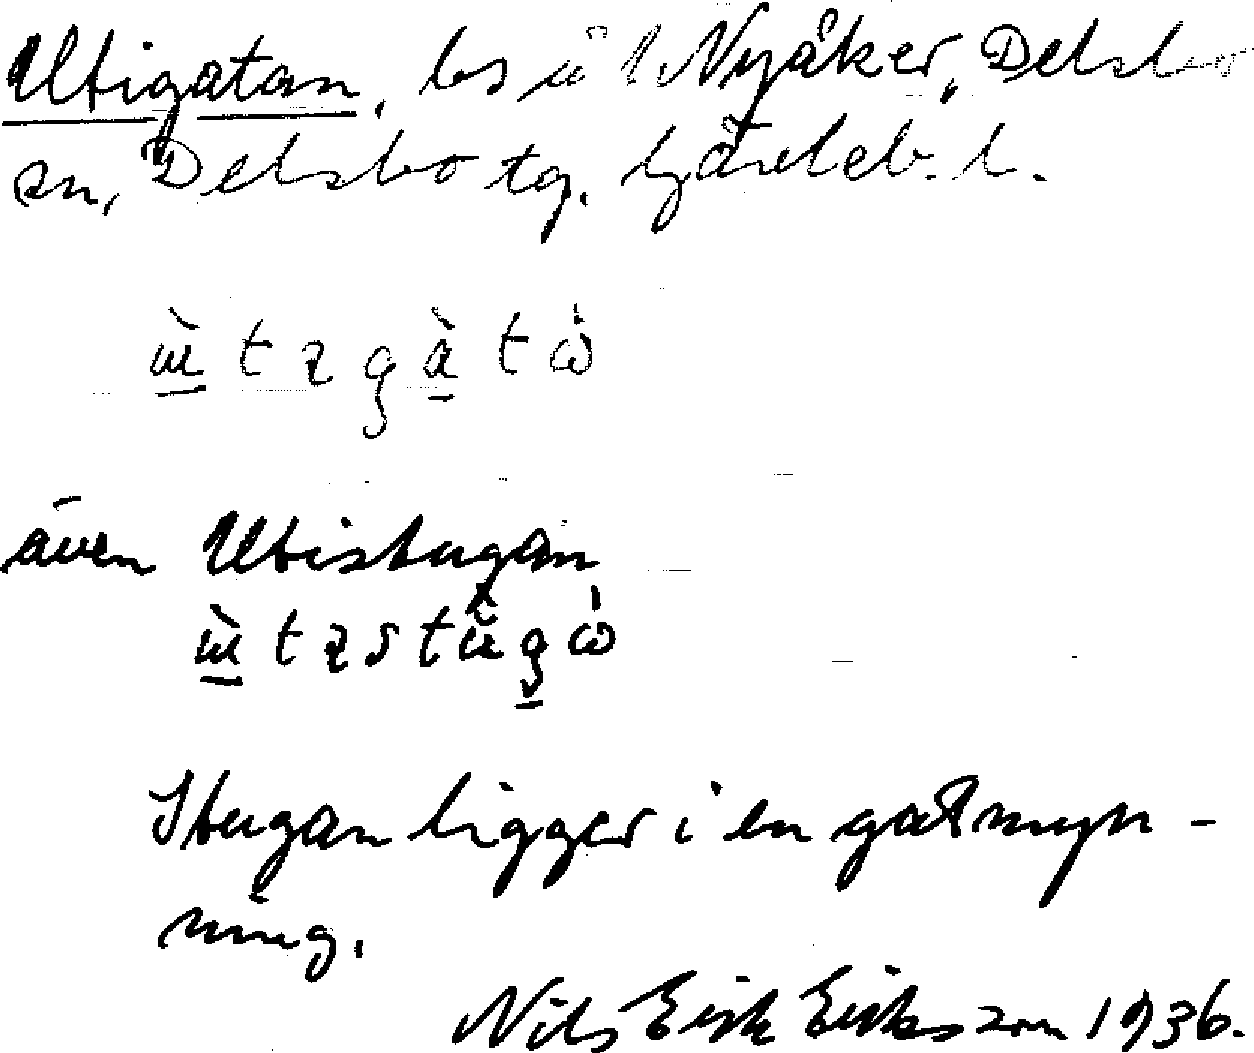 Utigatan, ls u l Nyåker, Delsbo
sn, Delsbo tg. Gävleb. l.
även Utistugan
Stugan ligger i en gatmyn-
ning.
Nils Erik Eriksson 1936.